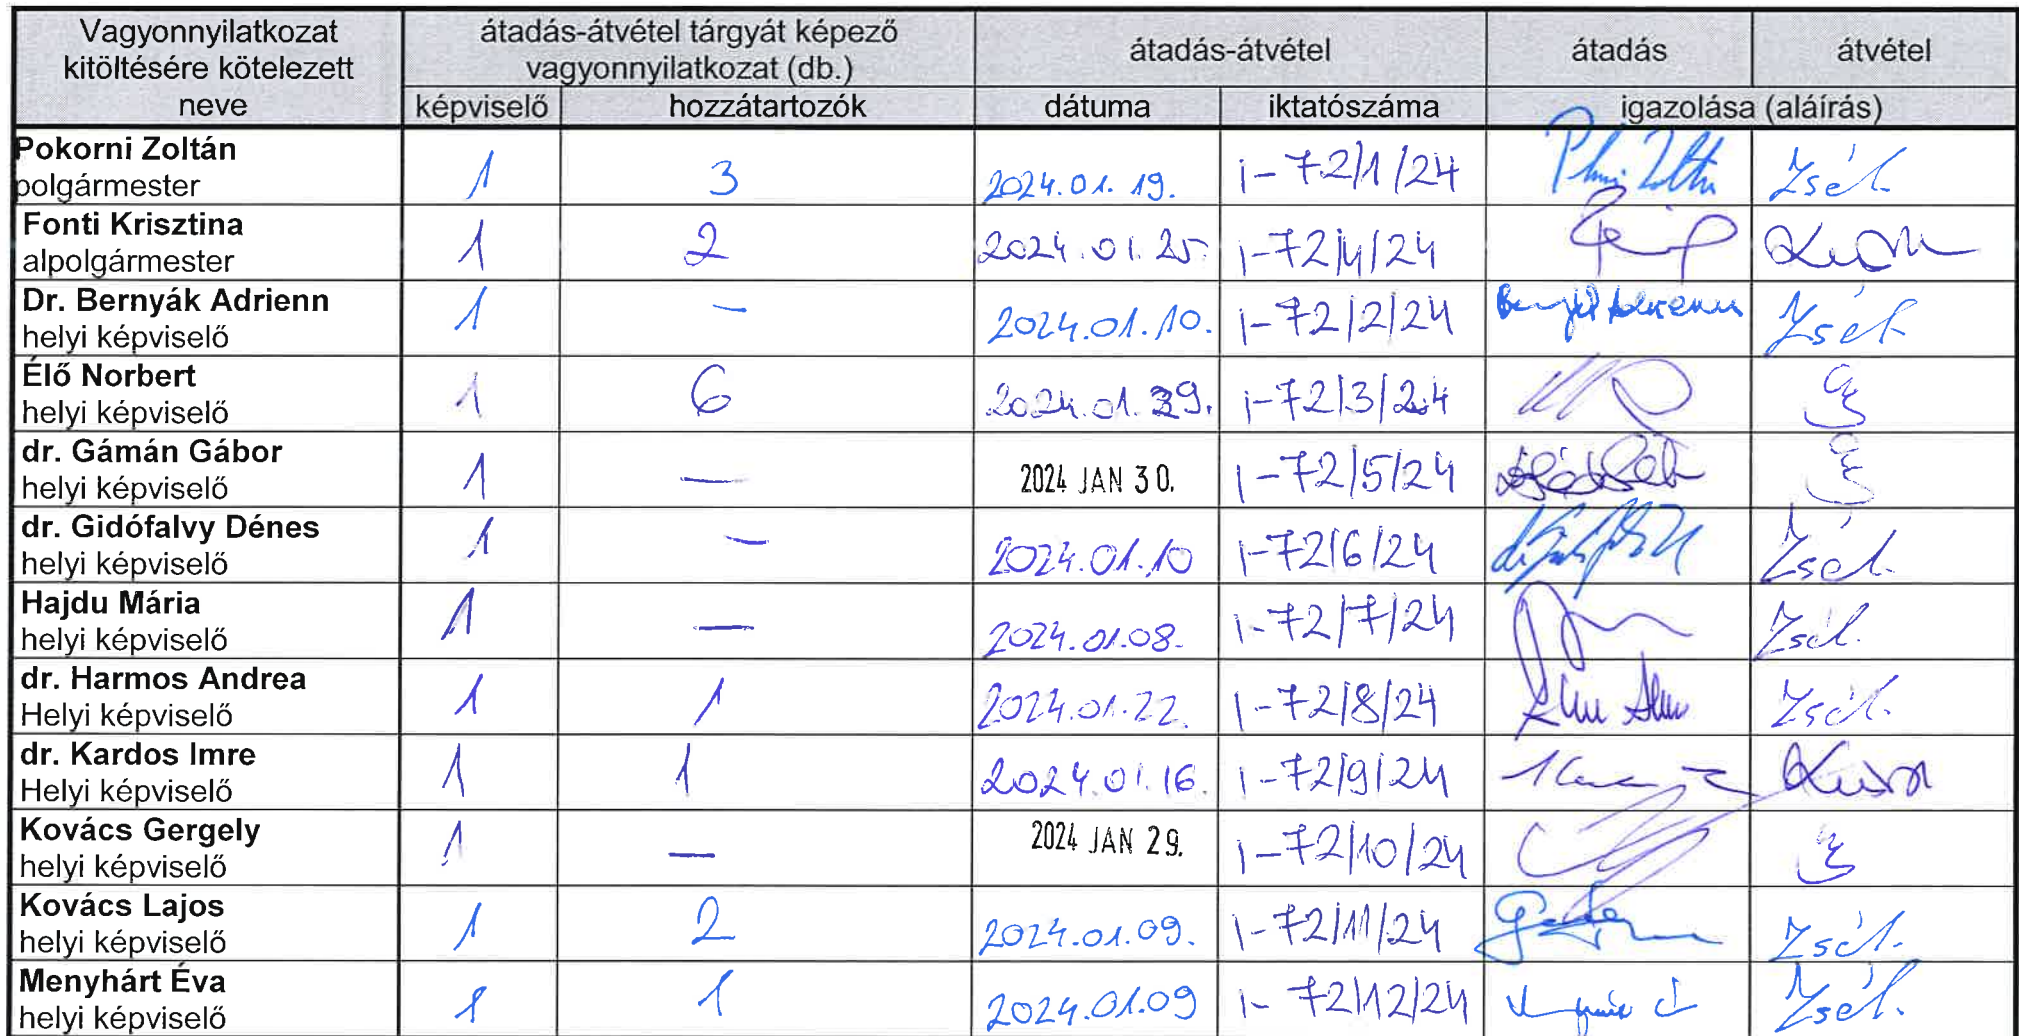 Vagyonnyilatkozat kitöltésére kötelezett neve
átadás-átvétel tárgyát képező vagyonnyilatkozat (db.)
átadás-átvétel
átadás
átvétel
képviselő
hozzátartozók
dátuma
iktatószáma
igazolása (aláírás)
Pokorni Zoltán
polgármester
1 3 2024.01.19. I-72/1/24 Zsél.
Fonti Krisztina
alpolgármester
1 2 2024.01.25. I-72/4/24
Dr. Bernyák Adrienn
helyi képviselő
1 – 2024.01.10. I-72/2/24 Zsél.
Élő Norbert
helyi képviselő
1 6 I-72/3/24
dr. Gámán Gábor
helyi képviselő
1 — 2024 JAN 30. I-72/5/24
dr. Gidófalvy Dénes
helyi képviselő
1 – 2024.01.10 I-72/6/24 Zsél.
Hajdu Mária
helyi képviselő
1 — 2024.01.08. I-72/7/24 Zsél.
dr. Harmos Andrea
Helyi képviselő
1 1 2024.01.22. I-72/8/24 Zsél.
dr. Kardos Imre
Helyi képviselő
1 1 2024.01.16. I-72/9/24
Kovács Gergely
helyi képviselő
1 — 2024 JAN 29. I-72/10/24
Kovács Lajos
helyi képviselő
1 2 2024.01.09. I-72/11/24 Zsél.
Menyhárt Éva
helyi képviselő
1 1 2024.01.09 I-72/12/24 Zsél.